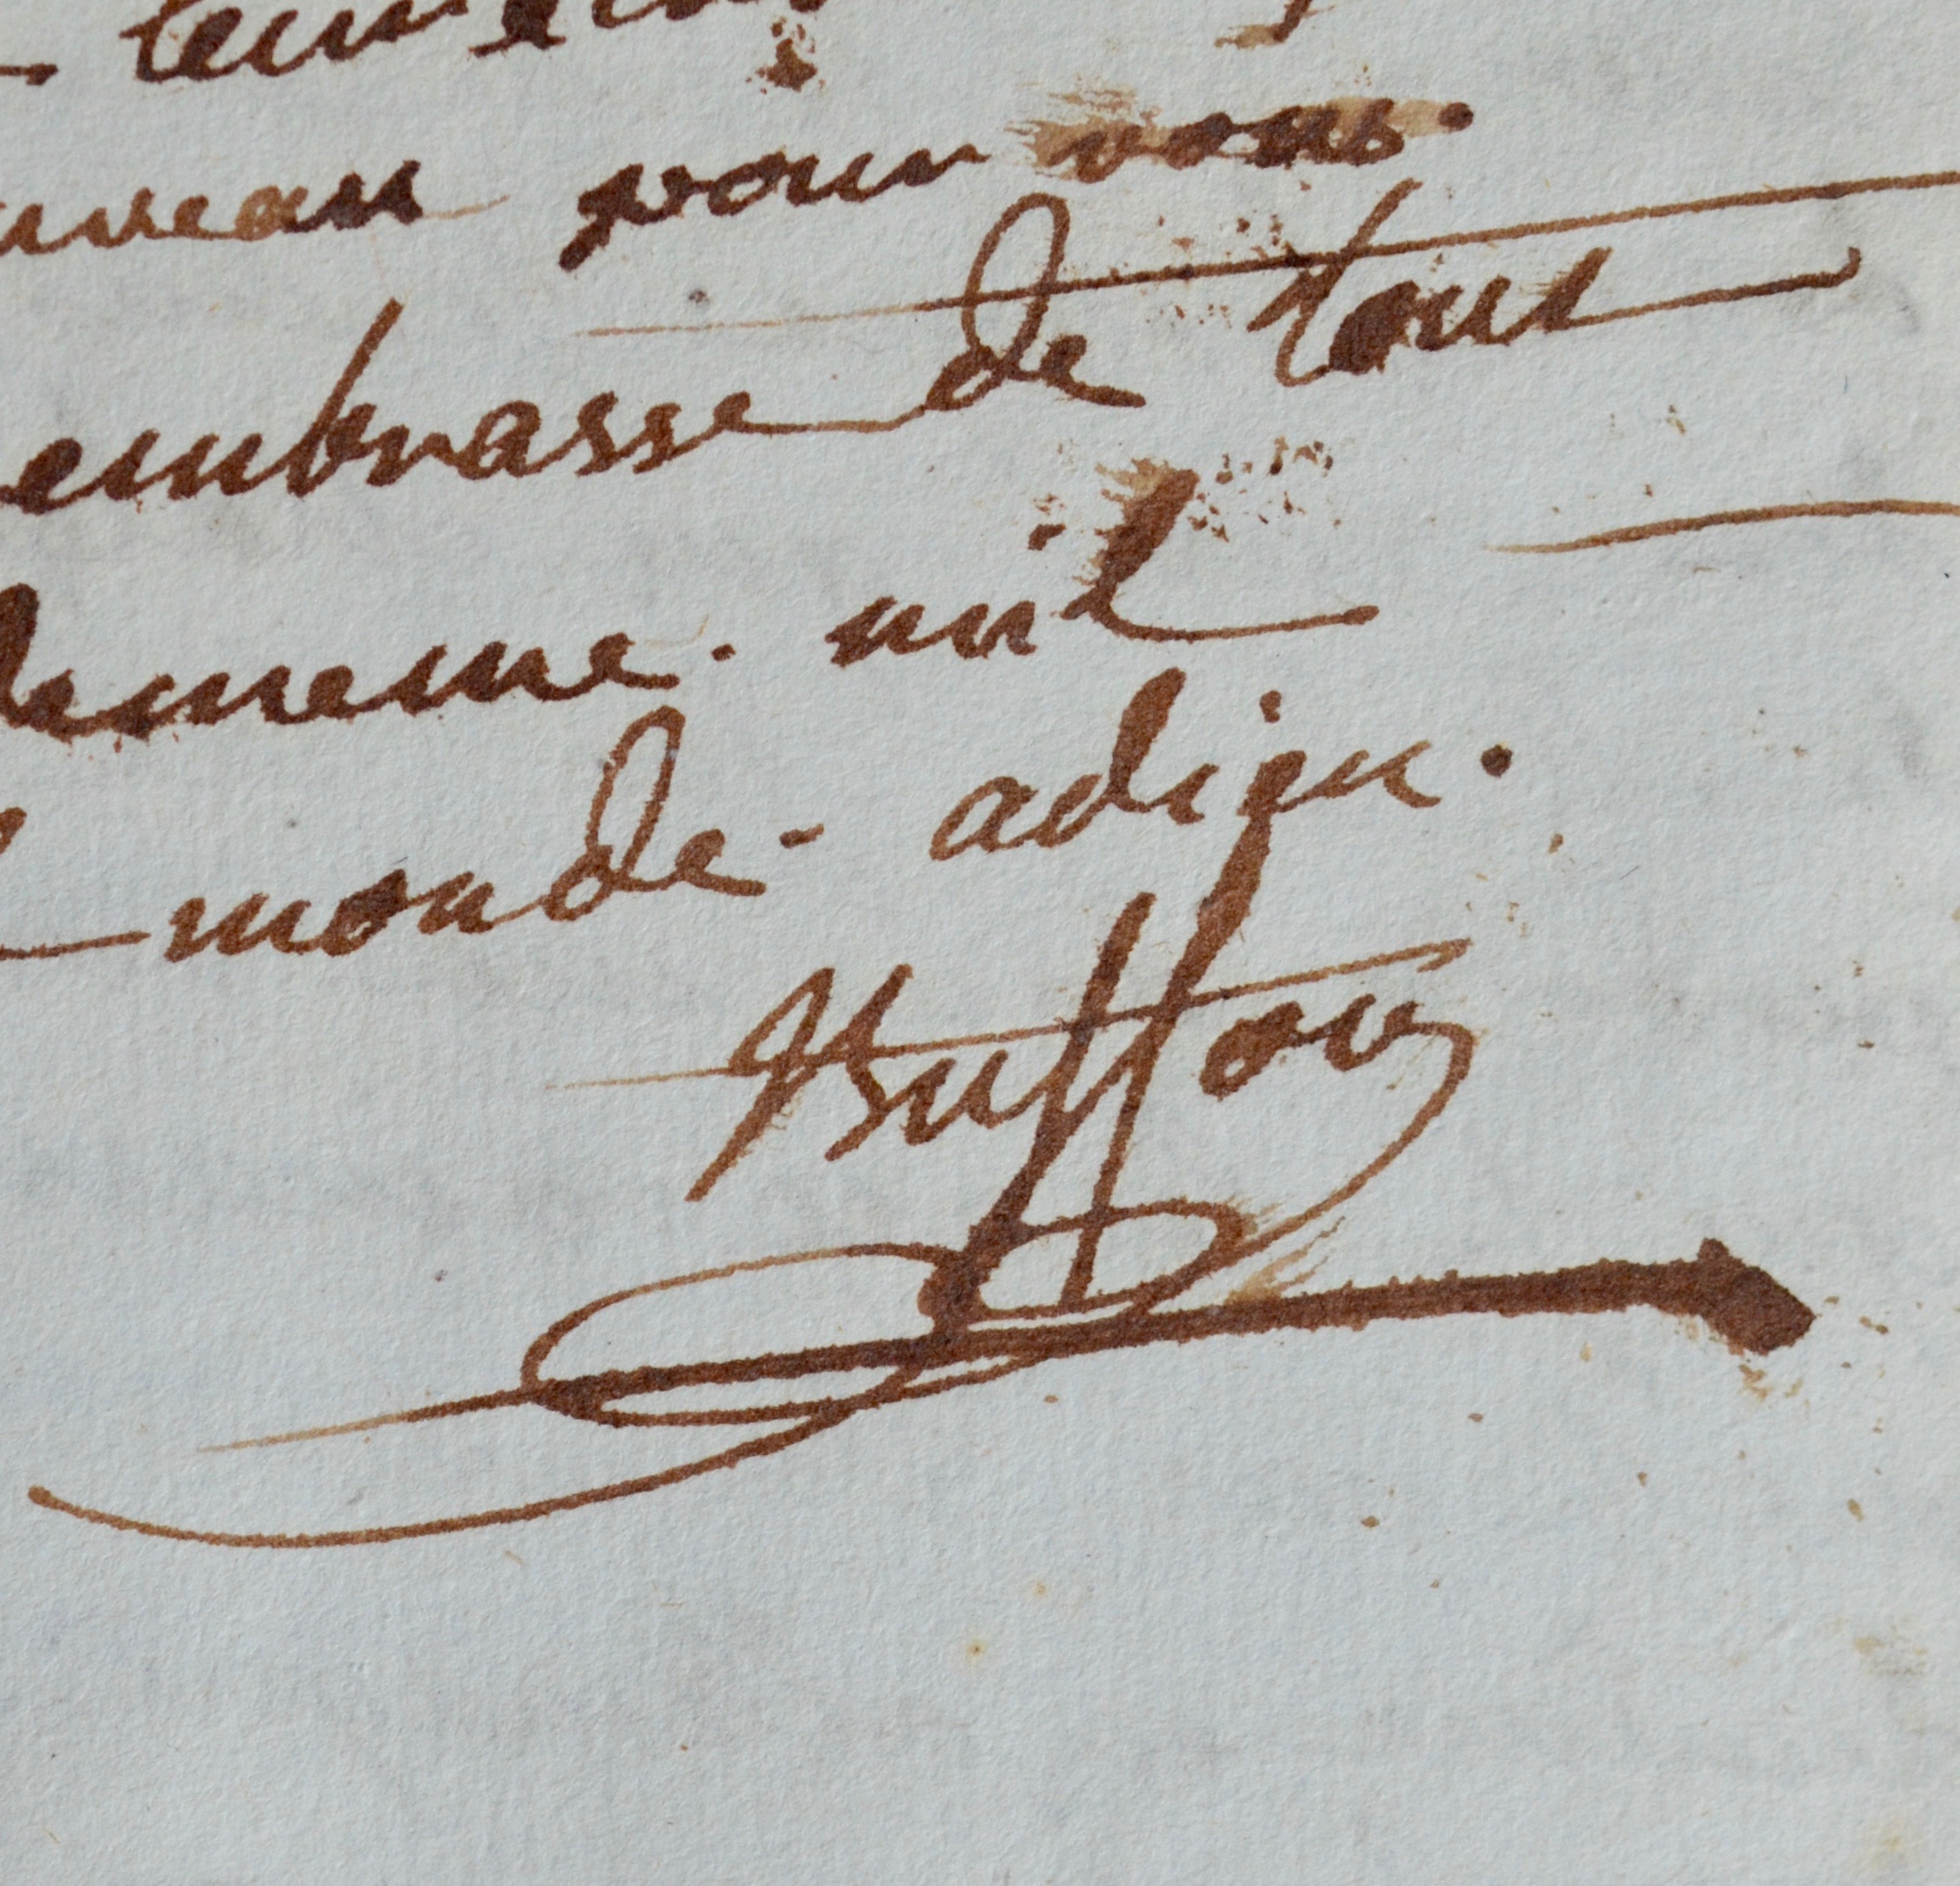 pour vous.
embrasse de tout
de meme. mil
monde - adieu.
Buffon